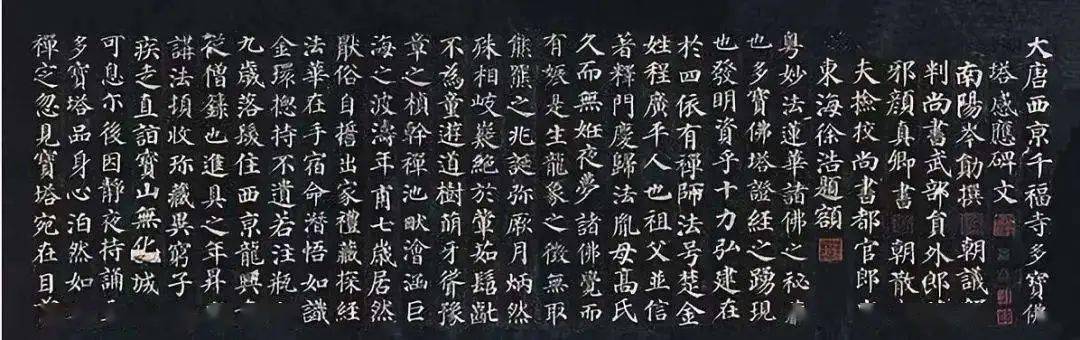 大唐西京千福寺多寶佛
塔感應碑文
南陽岑勛撰 朝議
判尚書武部員外郎
邪顏真卿書 朝散
夫撿挍尚書都官郎
東海徐浩題額
粵妙法蓮華諸佛之秘
也多寶佛塔證經之踴現
也發明資乎十力弘建在
於四依有禪師法号楚金
姓程廣平人也祖父並信
著釋門慶歸法胤母高氏
久而無姙夜夢諸佛覺而
有娠是生龍象之徵無取
熊羆之兆誕弥厥月炳然
殊相岐嶷絕於葷茹髫齔
不為童遊道樹萌牙聳豫
章之楨幹禪池畎澮涵巨
海之波濤年甫七歲居然
厭俗自誓出家禮藏探經
法華在手宿命潛悟如識
金環總持不遺若注瓶
九歲落髮住西京龍興
從僧籙也進具之年昇
講法頓收珎藏異窮子
疾走直詣寶山無化城
可息尒後因靜夜持誦
多寶塔品身心泊然如
禪定忽見寶塔宛在目